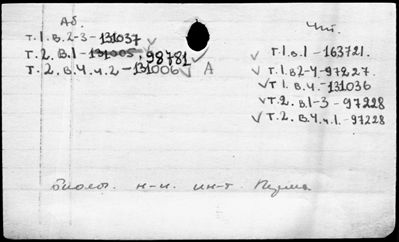 Аб.
т.1.в.2-3-131037
т.2.в.1-131005, 98781
т.2.в.4.ч.2-131006 А
Чит.
т.1.в.1-163721.
т.1.в2-4-97227.
т1.в.4.-131036
т.2.в.1-3-97228
т.2.в.4.ч.1.-97228
биолог. н-и. ин-т.